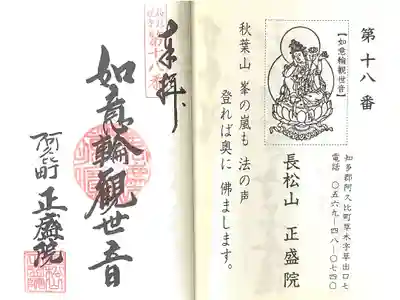 第十八番
知多郡阿久比町草木字草出口七
電話 〇五六九-四八-〇七四〇
【如意輪観世音】
長松山 正盛院
秋葉山 峯の嵐も 法の声
登れば奥に 佛まします。
奉拝
第十八番
如意輪觀世音
阿久比町 正盛院